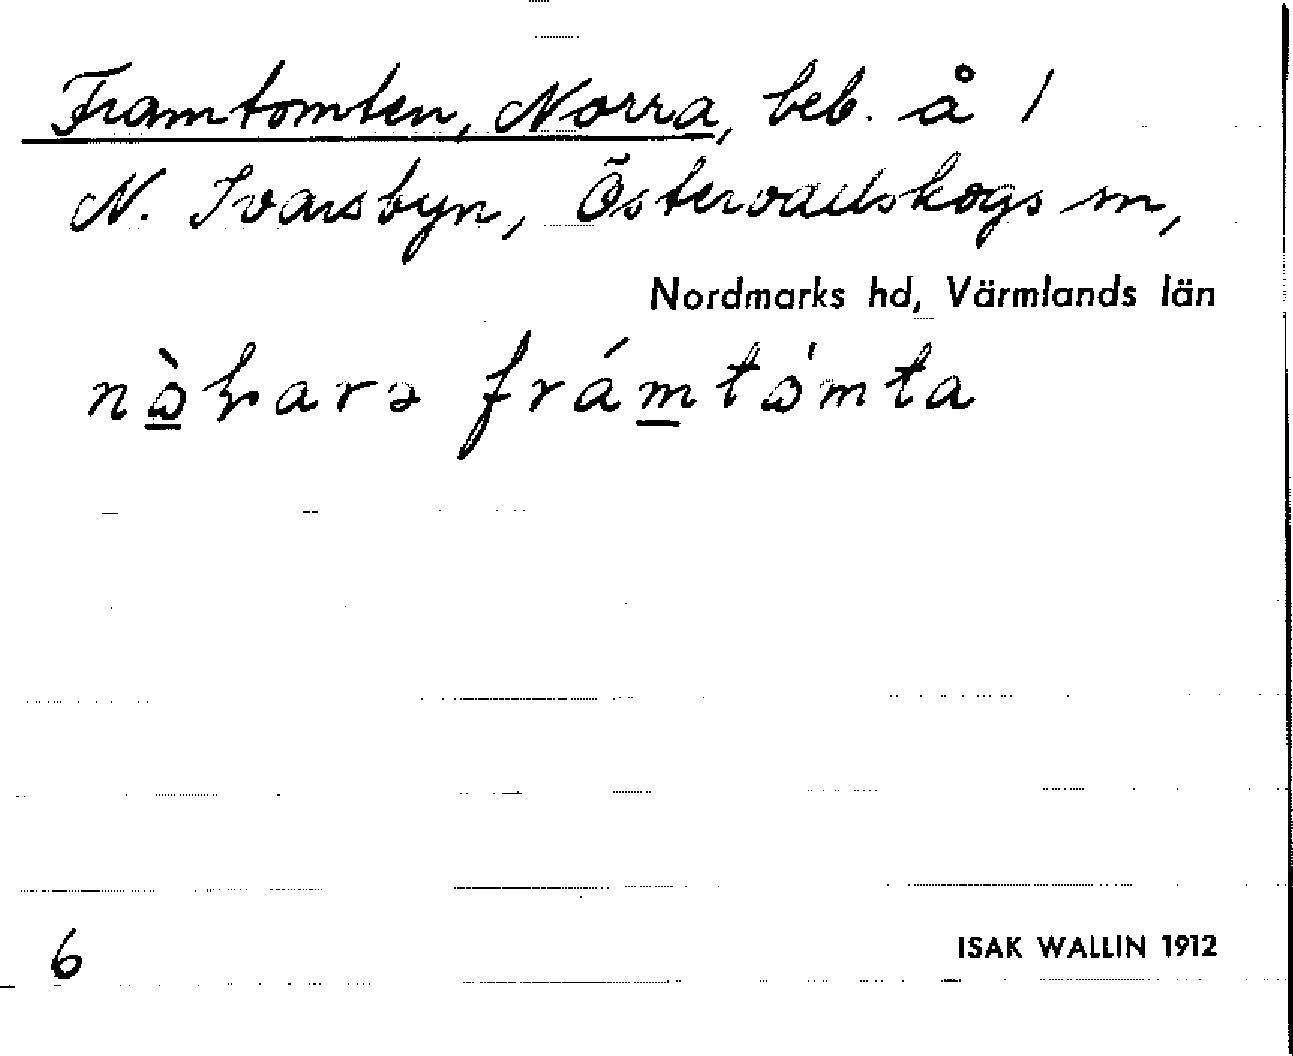 Framtomten, Norra, beb. å 1
N. Ivarsbyn, Östervallskogs sn,
Nordmarks hd, Värmlands län
frámtómta
6
ISAK WALLIN 1912